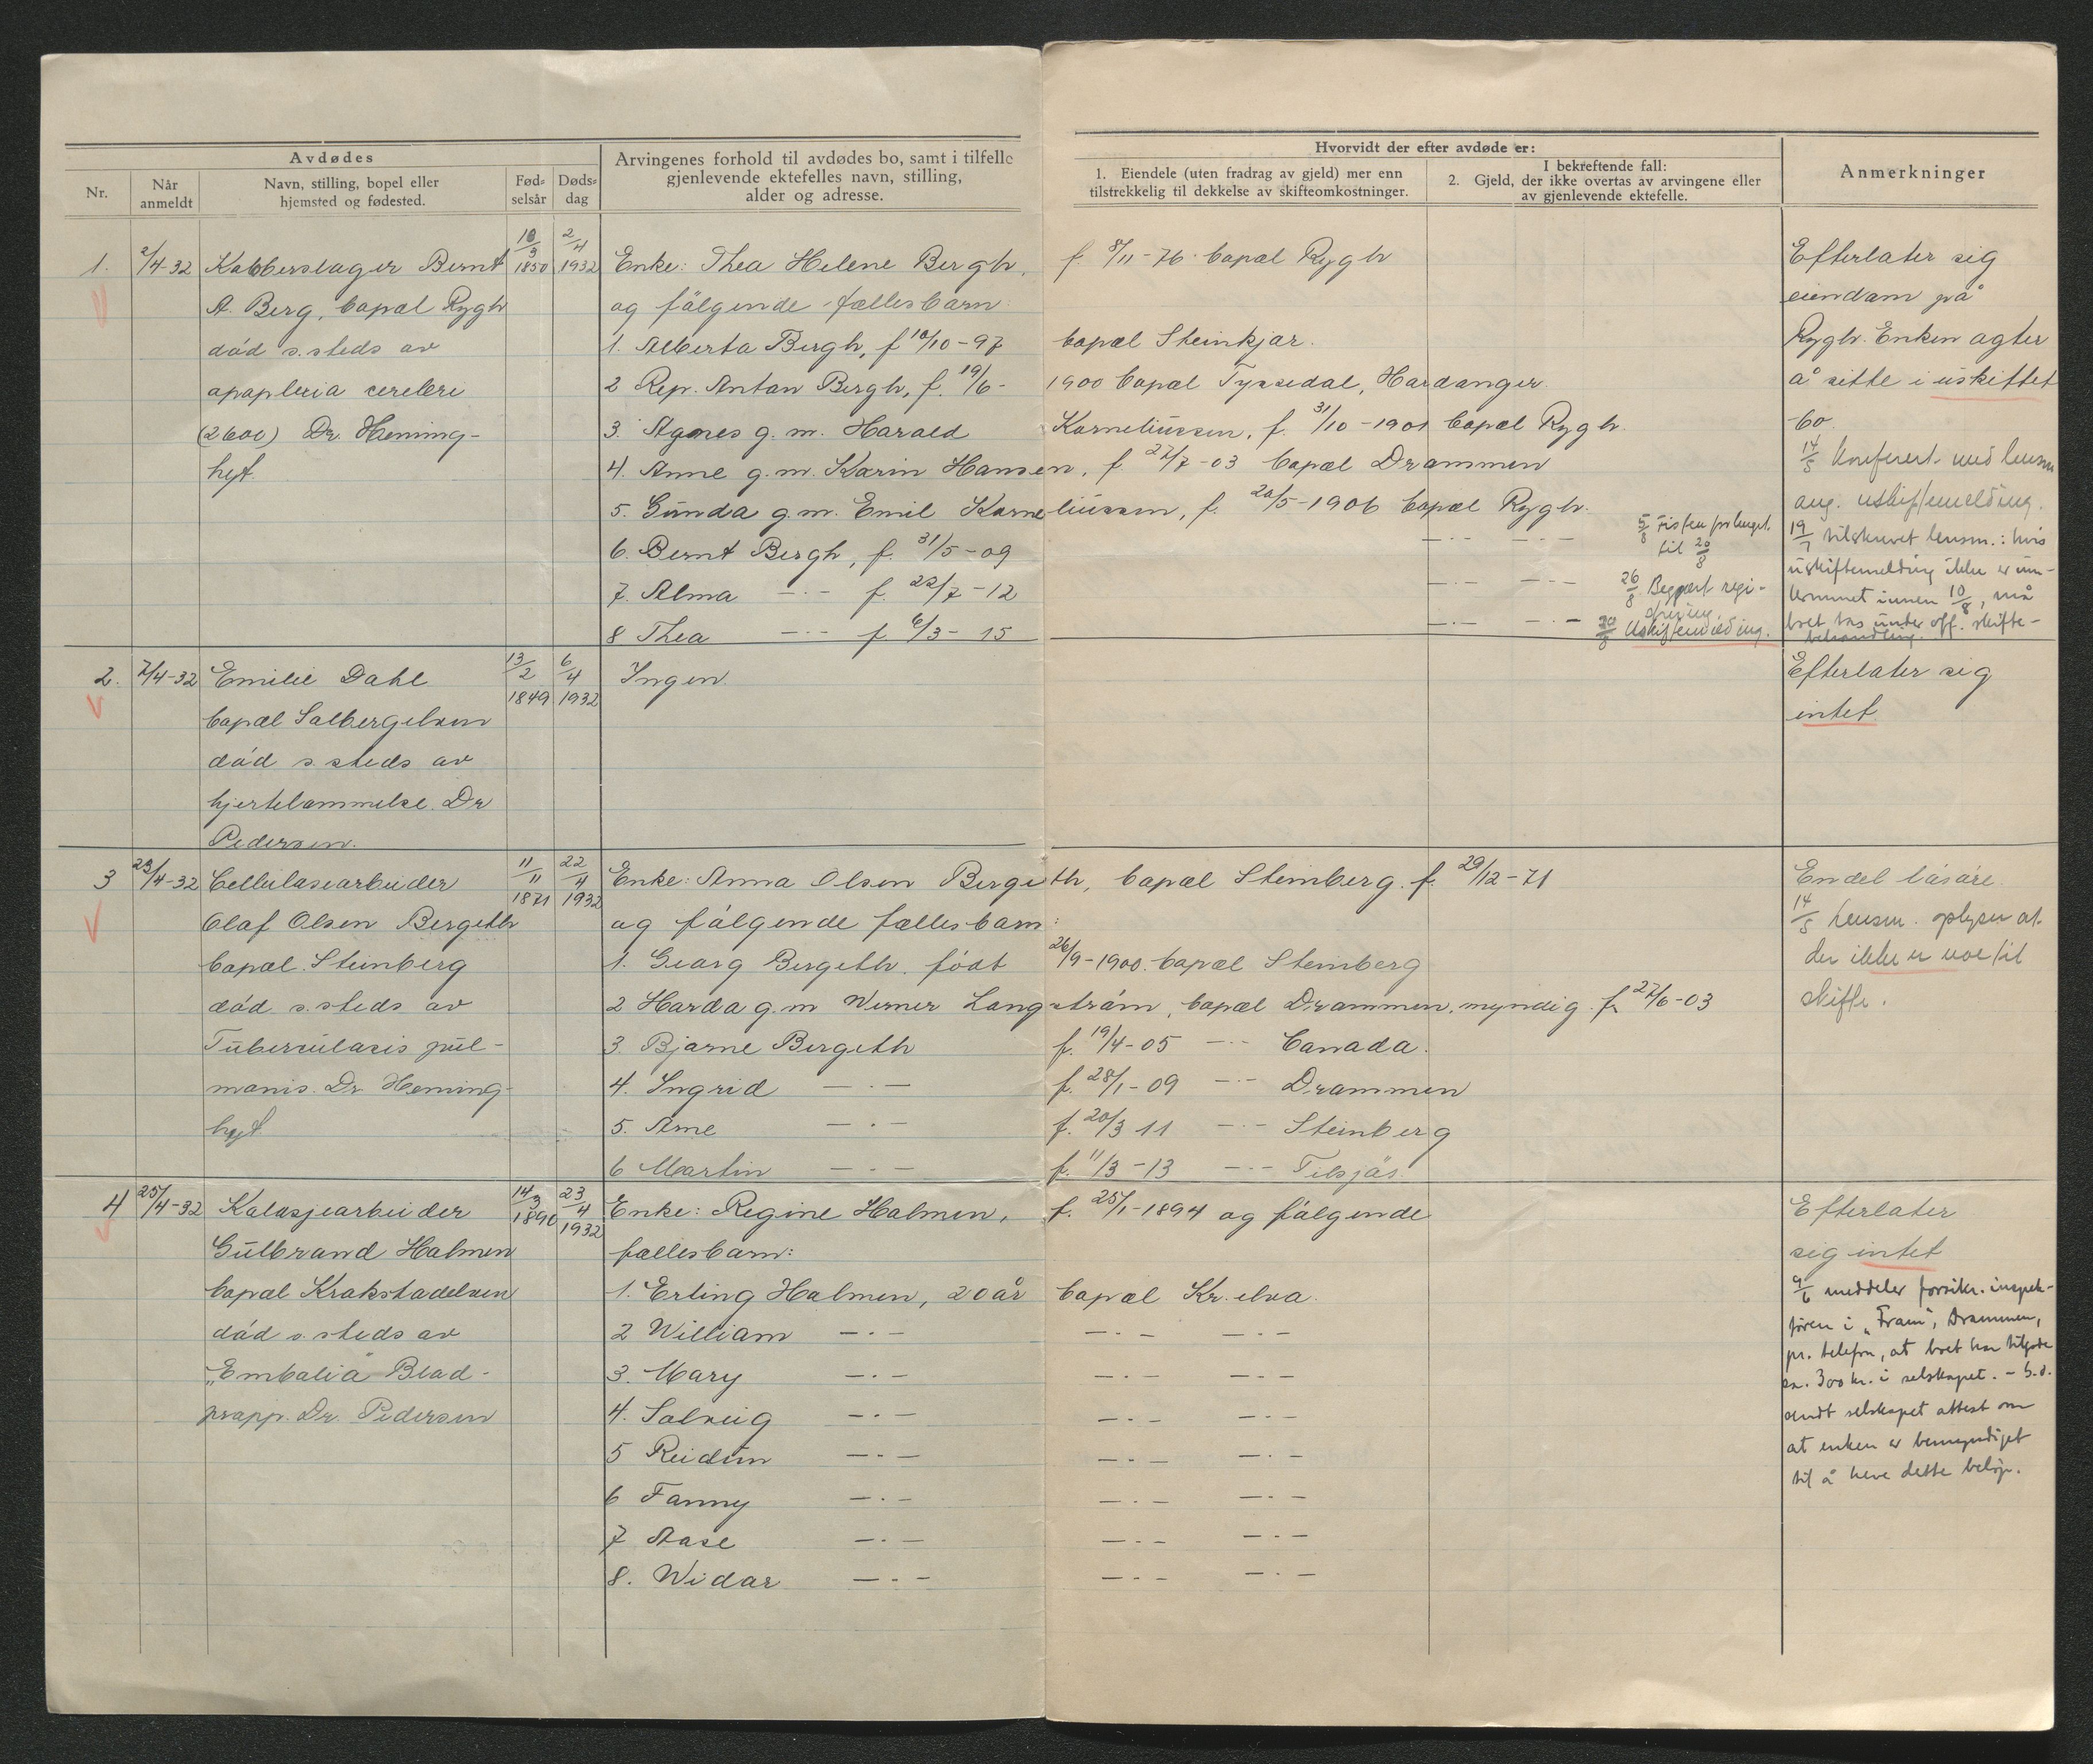 Avdødes
Arvingenes forhold til avdødes bo, samt i tilfelle
gjenlevende ektefelles navn, stilling,
alder og adresse.
Nr.
Når
anmeldt
Navn, stilling, bopel eller
hjemsted og fødested.
Fød-
selsår
Døds-
dag
Hvorvidt der efter avdøde er:
1. Eiendele (uten fradrag av gjeld) mer enn
tilstrekkelig til dekkelse av skifteomkostninger.
I bekreftende fall:
2. Gjeld, der ikke overtas av arvingene eller
av gjenlevende ektefelle.
Anmerkninger
1. 2/4-32 Kobberslager Bernt
A. Berg, bopæl Rygh
død s. steds av
apoplexia cerebri
Dr. Heming-
hyt.
1850 2/4 1932
Enke: Thea Helene Bergh, f. 8/11-76 bopæl Rygh
og følgende fællesbarn:
1. Alberta Bergh, f 10/10-97 bopæl Steinkjær.
2 Rep. Anton Bergh, f. 19/6-1900 bopæl Tyssedal, Hardanger.
3. Agnes g. m. Harald Korneliussen, f. 31/10-1901 bopæl Rygh.
4. Anne g. m. Karin Hansen, f 27/7-03 bopæl Drammen
5. Gunda g. m. Emil Korneliussen, f. 20/5-1906 bopæl Rygh.
6. Bernt Bergh, f. 31/5-09 —·— —·—
7. Alma —·— f. 22/7-12 —·— —·—
8 Thea —·— f. 6/3-15 —·— —·—
5/8 Fristen forlenget
til 20/8
26/8 Begjært regi-
strering.
Uskiftemelding.
Efterlater sig
eiendom på
Rygh. Enken agter
å sitte i uskiftet
bo.
14/5 Konferert med lensm
ang. uskiftemelding.
19/7 tilskrevet lensm.: hvis
uskiftemelding ikke er inn-
kommet innen 10/8, må
boet tas under off. skifte-
behandling.
2. 7/4-32 Emilie Dahl
bopæl Solbergelven
død s. steds av
hjertelammelse. Dr
Pedersen.
13/2 1849 6/4 1932
Ingen.
Efterlater sig
intet
3 23/4-32 Cellulosearbeider
Olaf Olsen Bergeth
bopæl Steinberg
død s. steds av
Tuberculosis pul-
monis. Dr. Heming-
hyt
11/11 1871 22/4 1932
Enke: Anna Olsen Bergeth, bopæl Steinberg. f. 29/12-71
og følgende fællesbarn:
1. Georg Bergeth. født 26/9-1900. bopæl Steinberg
2 Horda g. m Werner Langstrøm, bopæl Drammen. myndig. f. 27/6-03
3. Bjarne Bergeth f. 19/4-05 —·— Canada.
4. Ingrid —·— f. 28/1-09 —·— Drammen
5. Arne —·— f. 20/3 11 —·— Steinberg
6 Martin —·— f. 11/3-13 —·—
Endel løsøre.
14/5 Lensm. oplyser at
der ikke er noe til
skifte.
4 25/4-32 Kolosjearbeider
Gulbrand Holmen
bopæl Krokstadelven
død s. steds av
"Embolia" Blod-
propp. Dr. Pedersen
14/3 1890 23/4 1932
Enke: Regine Holmen, f. 25/1-1894 og følgende
fællesbarn:
1. Erling Holmen, 20 år bopæl Kr. elva.
2 William —·— —·— —·—
3. Mary —·— —·— —·—
4. Solveig —·— —·— —·—
5 Reidun —·— —·— —·—
6 Fanny —·— —·— —·—
7 Aase —·— —·— —·—
8. Widar —·— —·— —·—
Efterlater
sig intet
9/6 meddeler forsikr. inspek-
tøren i "Fram", Drammen,
pr. telefon, at boet har tilgode
ca. 300 kr. i selskapet. - S.d.
sendt selskapet attest om
at enken er bemyndiget
til å heve dette beløp.